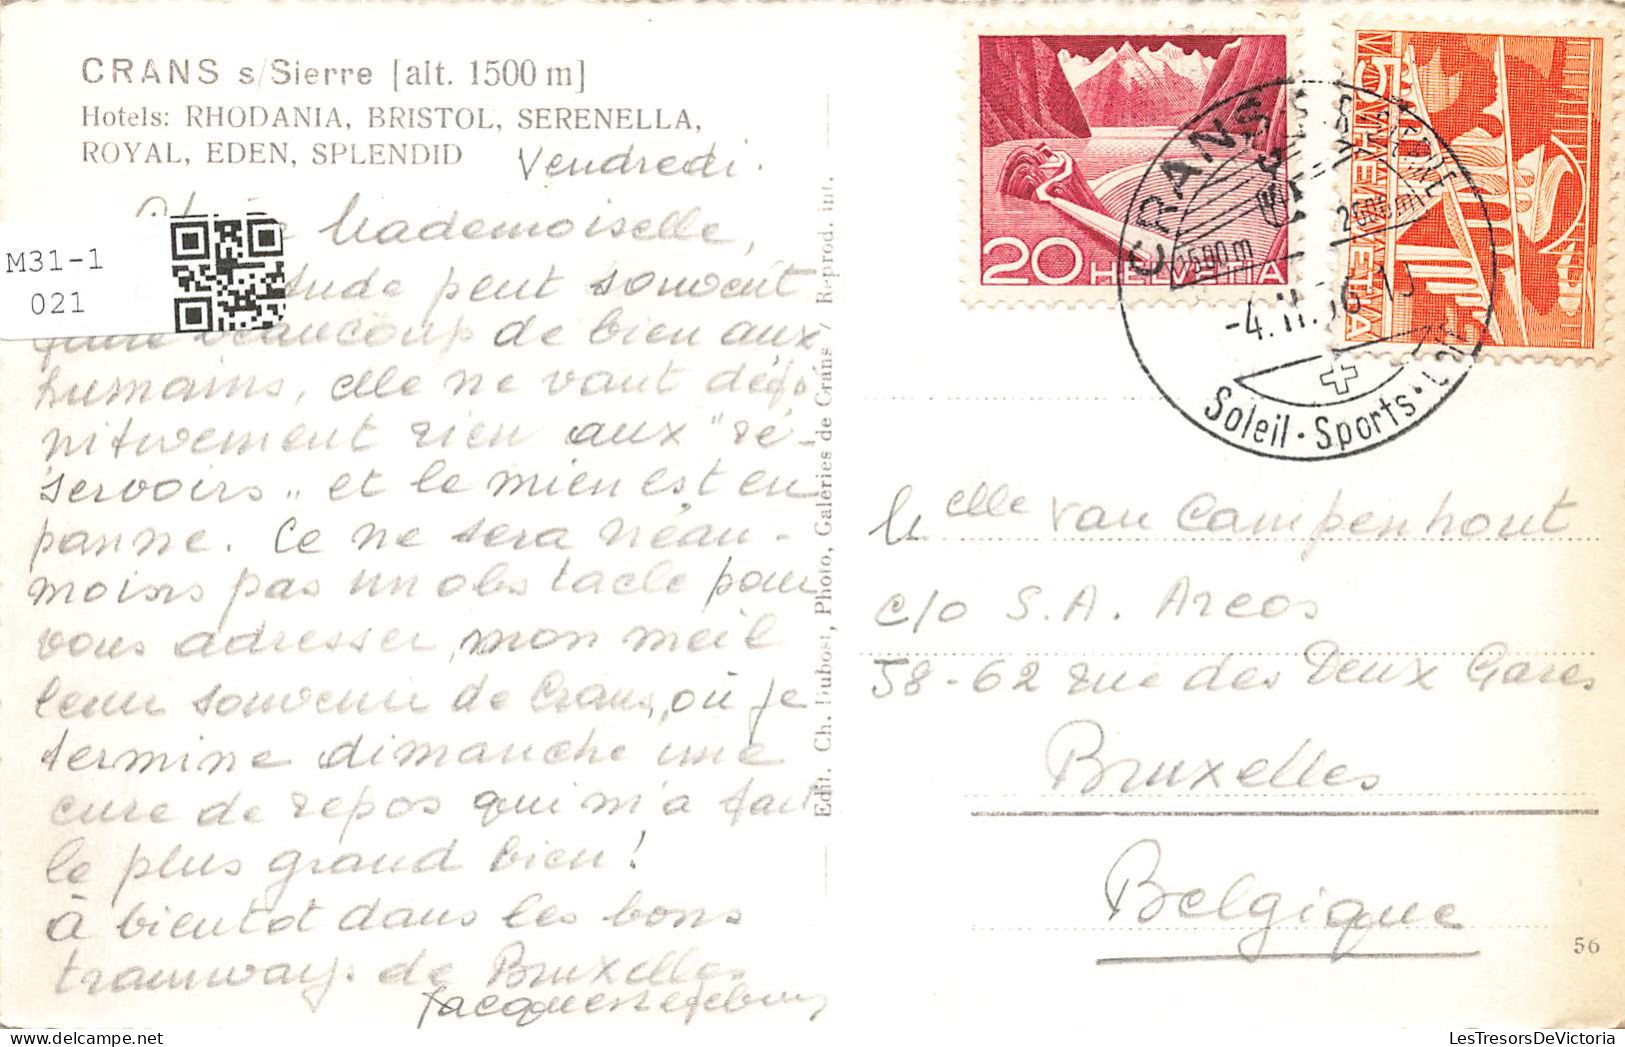 CRANS s/Sierre [alt. 1500 m]
Hotels: RHODANIA, BRISTOL, SERENELLA,
ROYAL, EDEN, SPLENDID
Vendredi.
Mademoiselle,
peut souvent
faire beaucoup de bien aux
humains, elle ne vaut défi
nitivement rien aux "ré-
servoirs" et le mien est en
panne. Ce ne sera néan-
moins pas un obstacle pour
vous adresser mon meil
leur souvenir de Crans, où je
termine dimanche une
cure de repos qui m'a fait
le plus grand bien!
à bientot dans les bons
tramways de Bruxelles
M31-1
021
Edit. Ch. Dubost, Photo, Galeries de Crans / Reprod. int.
20 HELVETIA
5 HELVETIA
CRANS
1500 m
-4.II.56.
Soleil · Sports ·
Melle van Campenhout
c/o S.A. Arcos
58-62 rue des Deux Gares
Bruxelles
Belgique
56
LesTresorsDeVictoria